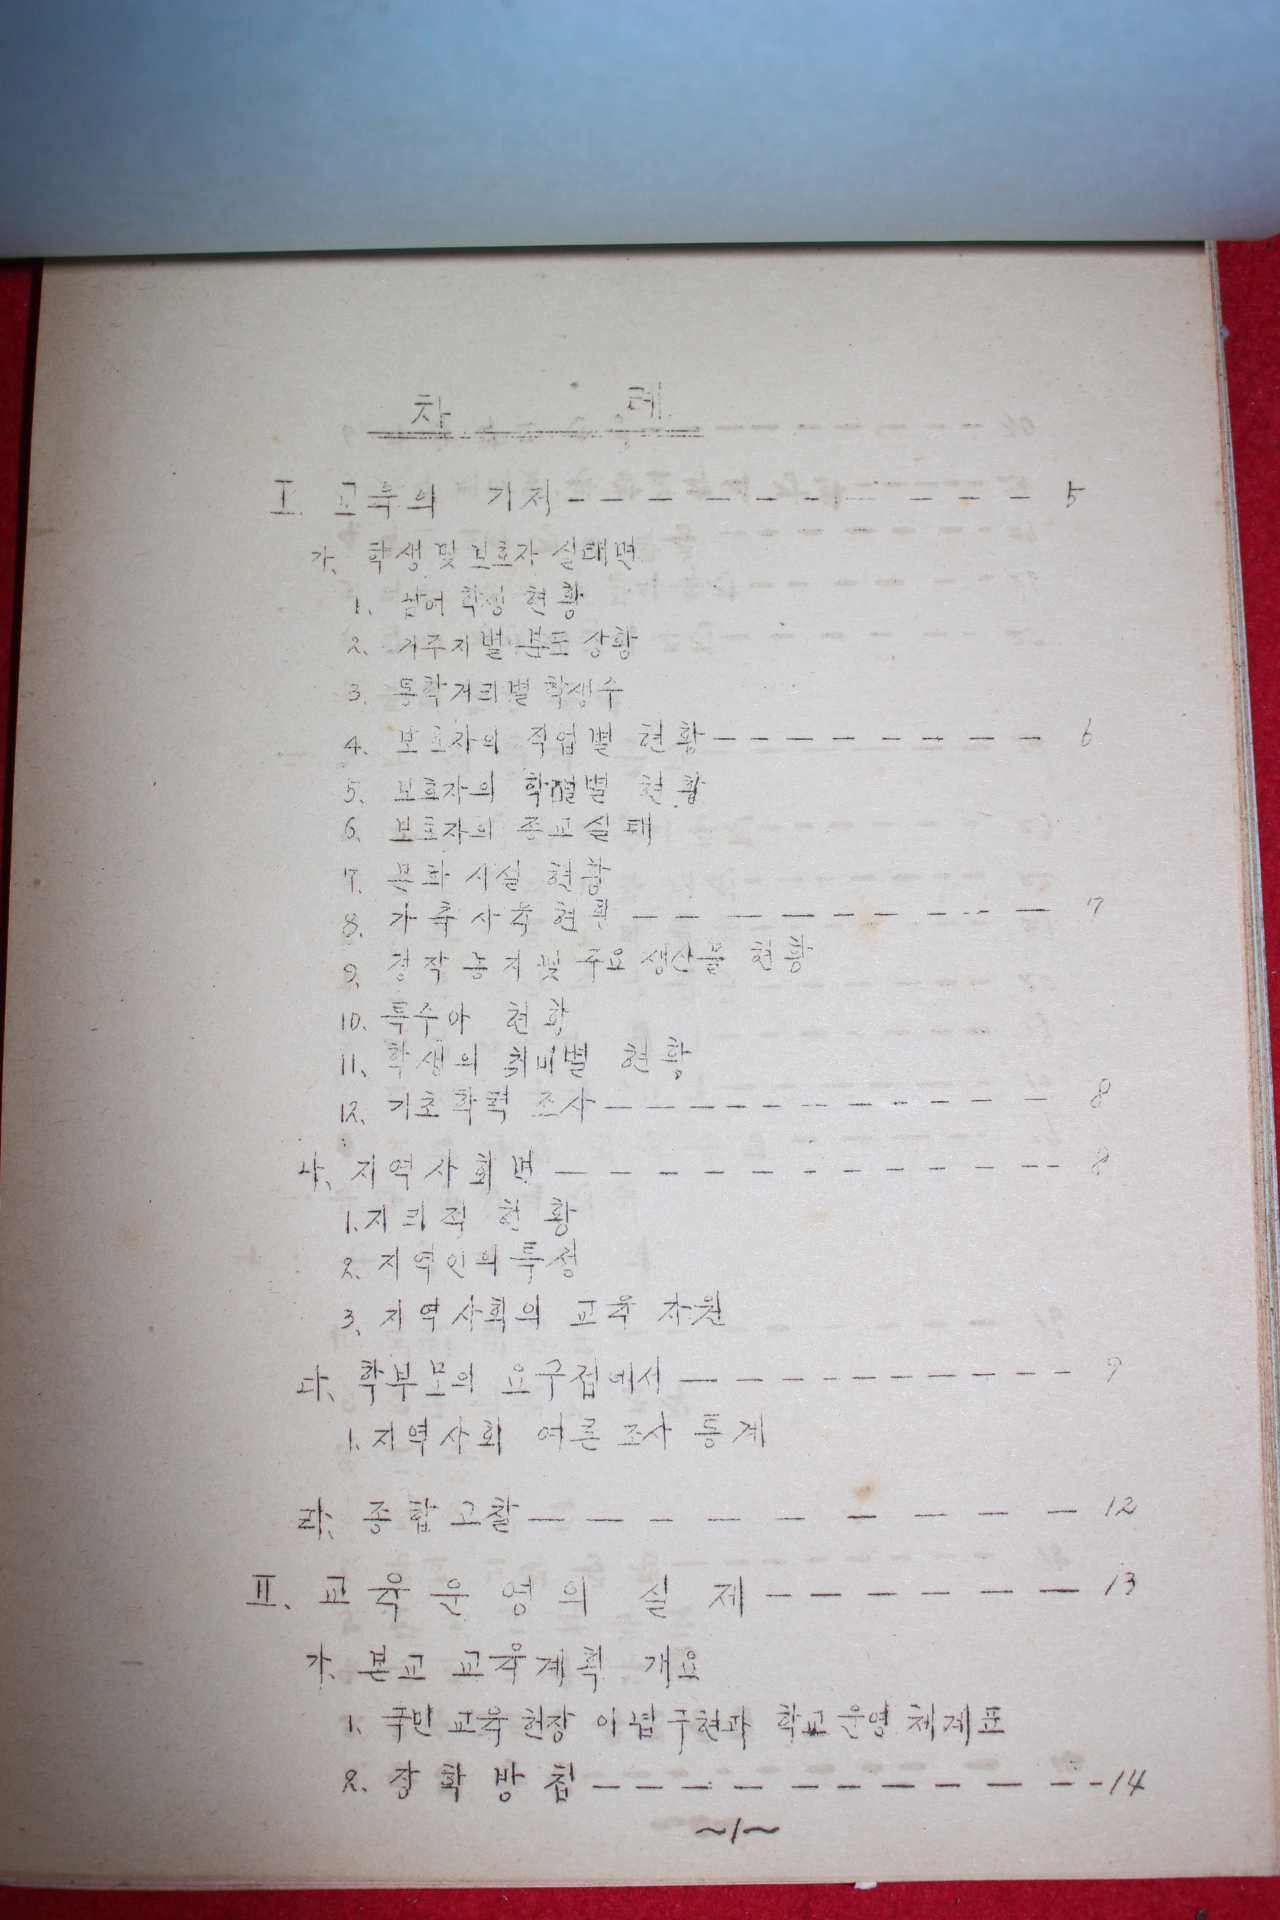 차 례
Ⅰ. 교육의 기저 ----------- 5
가. 학생 및 보호자 실태면
1. 학생 현황
2. 거주지별 분포 상황
3. 통학거리별 학생수
4. 보호자의 직업별 현황 --------- 6
5. 보호자의 학력별 현황
6. 보호자의 종교 실태
7. 문화 시설 현황
8. 가축 사육 현황 ---------- 7
9. 경작 농지 및 주요 생산물 현황
10. 특수아 현황
11. 학생의 취미별 현황
12. 기초학력 조사 ------------ 8
나. 지역사회면 ------------- 8
1. 지리적 현황
2. 지역인의 특성
3. 지역사회의 교육 자원
다. 학부모의 요구점에서 ----------- 9
1. 지역사회 여론 조사 통계
라. 종합고찰 ---------- 12
Ⅱ. 교육 운영의 실제 ------- 13
가. 본교 교육계획 개요
1. 국민 교육 헌장 이념 구현과 학교 운영 체계표
2. 장학 방침 ----------- 14
~1~